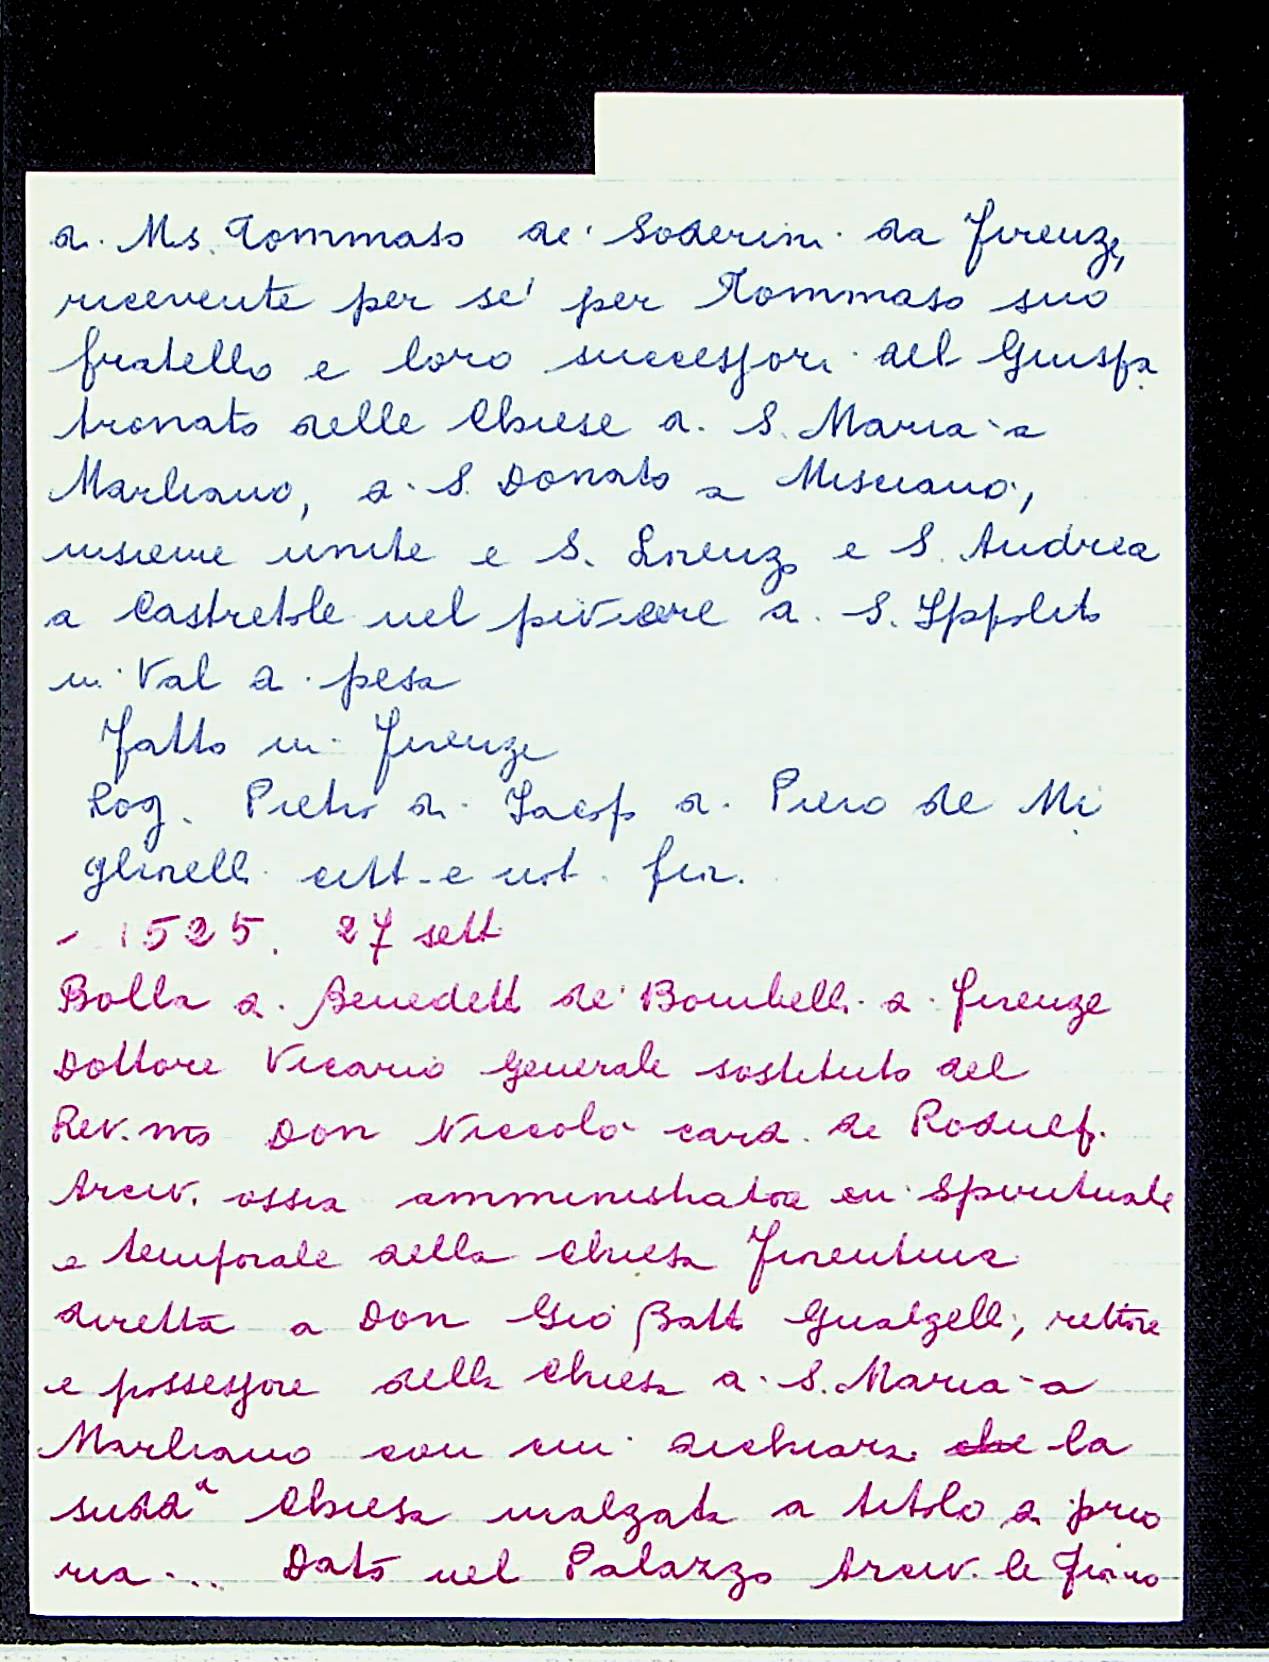 di Ms. Tommaso de' Soderini da Firenze,
ricevente per se' per Tommaso suo
fratello e loro successori del Giuspa
tronato delle Chiese di S. Maria a
Marliano, di S. Donato a Misciano,
insieme unite e S. Lorenzo e S. Andrea
a Castretole nel piviere di S. Ippolito
in Val di pesa
Fatto in Firenze
Rog. Pietro di Jacopo di Piero de Mi
glinelli citt. e not. fior.
- 1525. 27 sett
Bolla di Benedetto de' Bombelli di Firenze
Dottore Vicario Generale sostituto del
Rev.mo Don Niccolò card. de Rodulfi
Arciv. ossia amministratore in Spirituale
e temporale della chiesa Fiorentina
diretta a Don Gio Batt Gualzelli, rettore
e possessore della Chiesa di S. Maria a
Marliano con cui dichiara che la
sudd.a Chiesa inalzata a titolo di prio
ria... Dato nel Palazzo Arciv.le Fioro